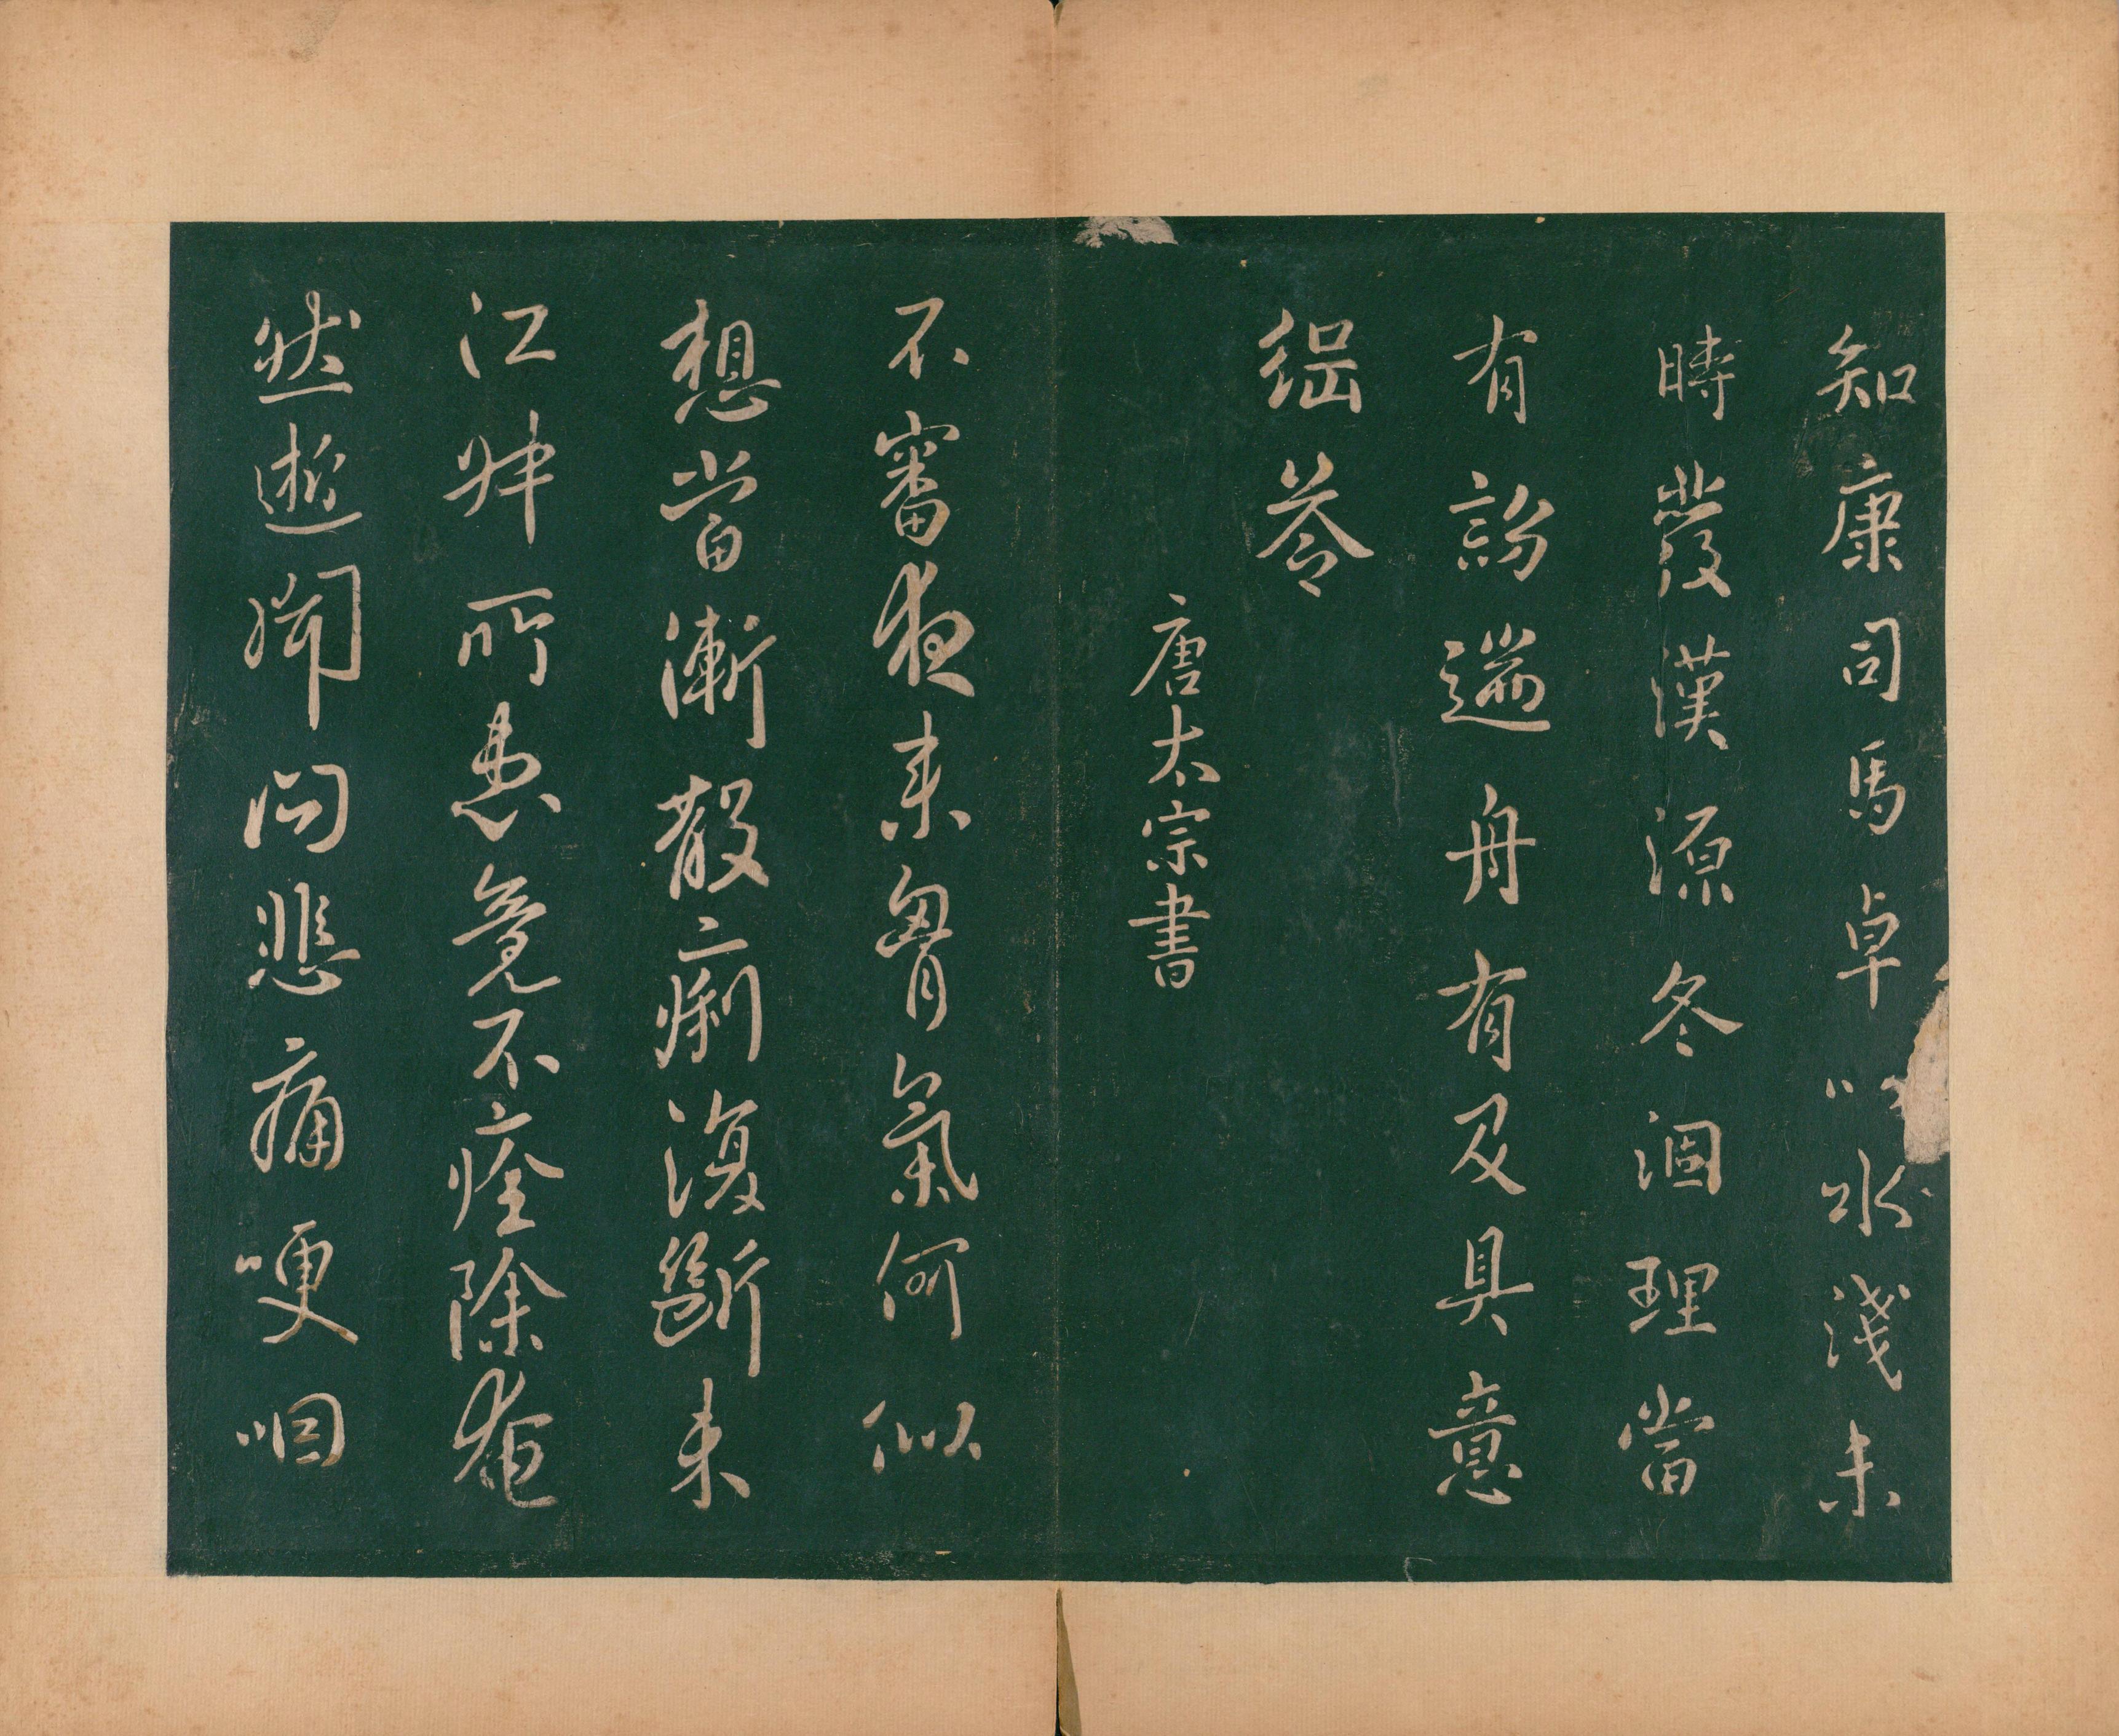 知康司馬卓以水淺未
時發漢源冬涸理當
有訪遄舟有及具意
答
唐太宗書
不審夜來胷氣何似
想當漸散痢復斷未
江州所患竟不痊除奄
然逝聞問悲痛哽咽